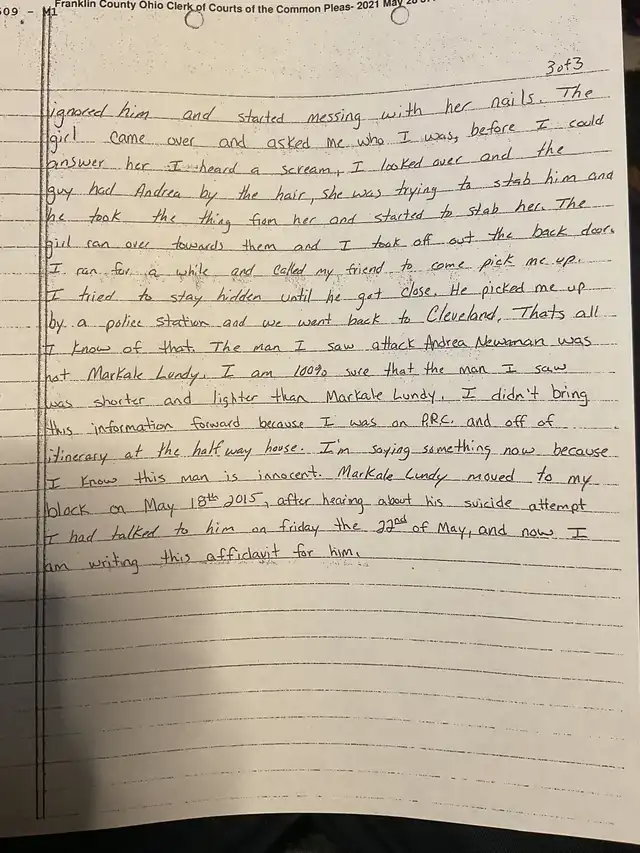 509 - M1
Franklin County Ohio Clerk of Courts of the Common Pleas- 2021 May 20
3 of 3
ignored him and started messing with her nails. The
girl came over and asked me who I was, before I could
answer her I heard a scream, I looked over and the
guy had Andrea by the hair, she was trying to stab him and
he took the thing from her and started to stab her. The
girl ran over towards them and I took off out the back door.
I ran for a while and called my friend to come pick me up.
I tried to stay hidden until he got close. He picked me up
by a police station and we went back to Cleveland, Thats all
I know of that. The man I saw attack Andrea Newman was
not Markale Lundy. I am 100% sure that the man I saw
was shorter and lighter than Markale Lundy. I didn't bring
this information forward because I was on P.R.C. and off of
itinerary at the half way house. I'm saying something now because
I know this man is innocent. Markale Lundy moved to my
block on May 18th 2015, after hearing about his suicide attempt
I had talked to him on Friday the 22nd of May, and now I
am writing this affidavit for him.